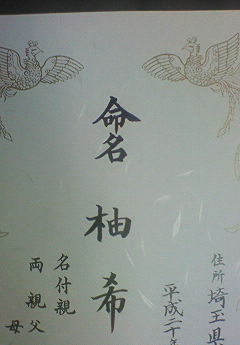 住所 埼玉県
平成二十年
命名 柚希
名付親
両親 父
母